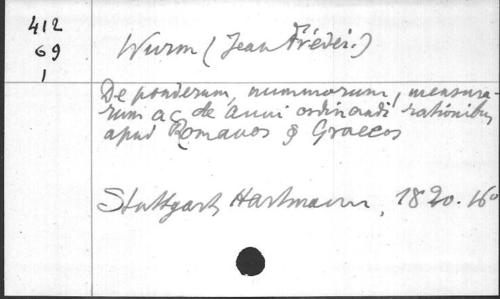 412
69
1
Wurm (Jean Fréder.)
De ponderum, nummorum, mensura-
rum ac de anni ordinandi rationibus
apud Romanos & Graecos
Stuttgart Hartmann, 1820. 16o